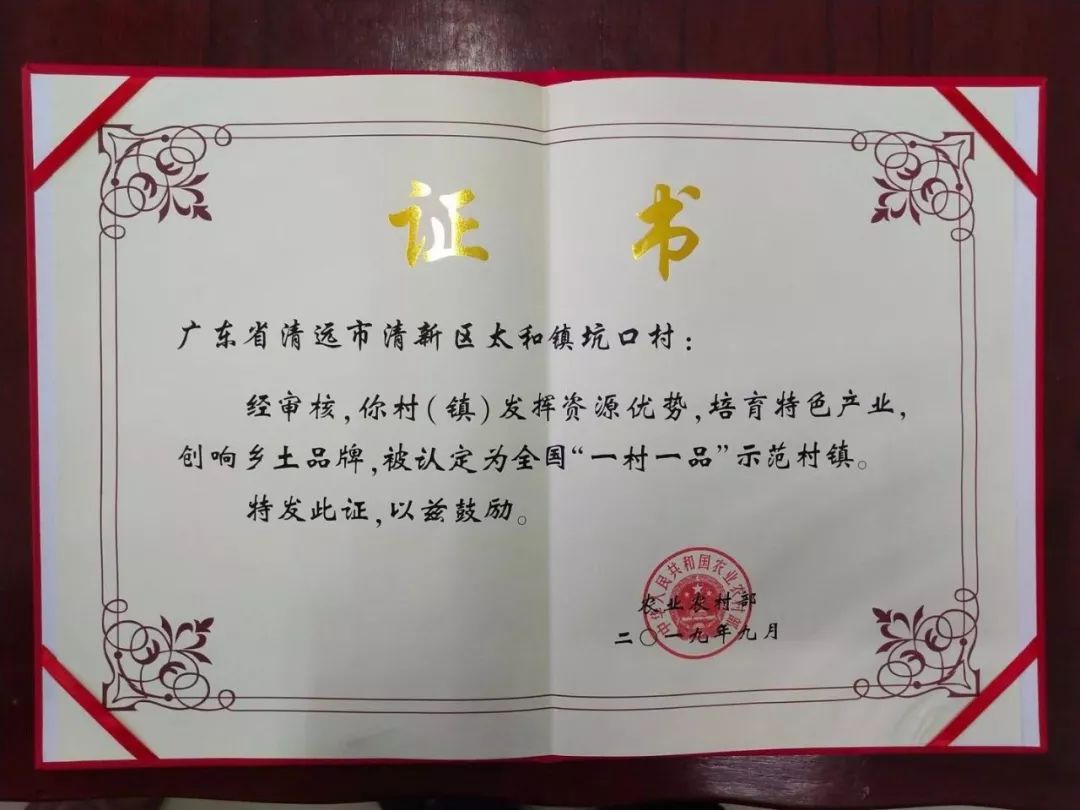 证书
广东省清远市清新区太和镇坑口村：
经审核，你村（镇）发挥资源优势，培育特色产业，
创响乡土品牌，被认定为全国“一村一品”示范村镇。
特发此证，以兹鼓励。
中华人民共和国农业农村部
农业农村部
二〇一九年九月